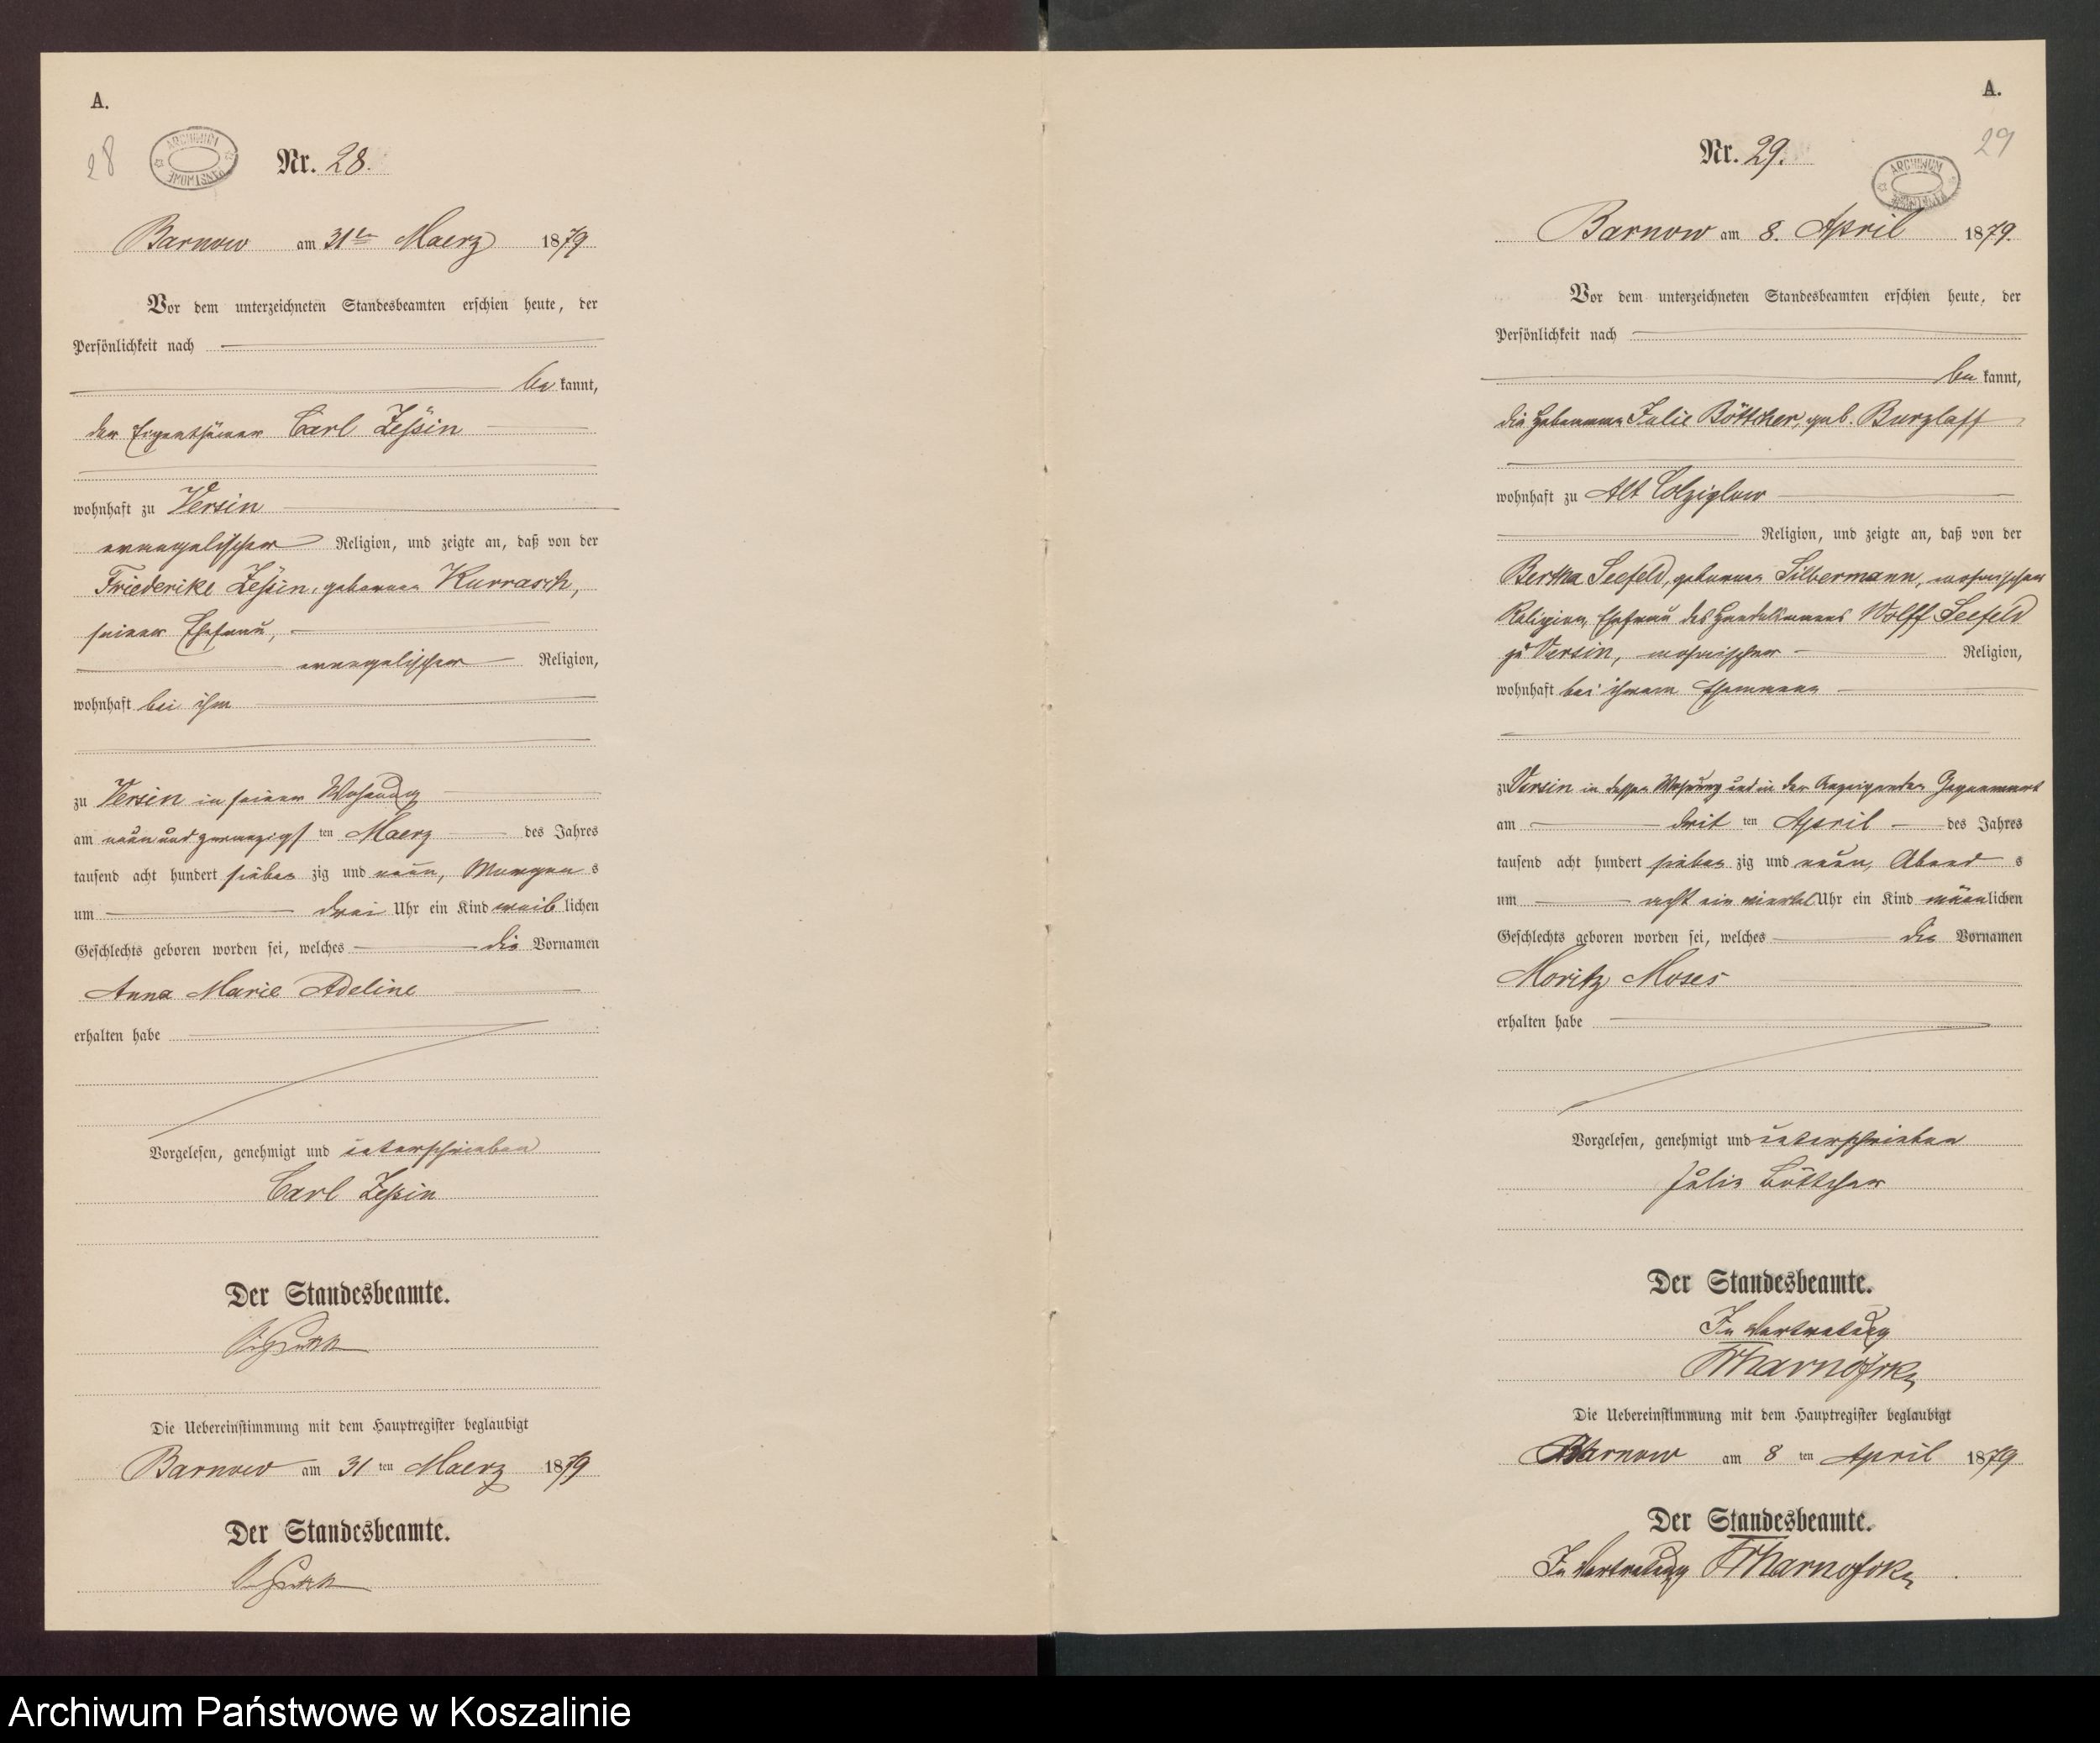 A.
28
ARCHIWUM PAŃSTWOWE
Nr. 28.
Barnow am 31ten Maerz 1879
Vor dem unterzeichneten Standesbeamten erschien heute, der
Persönlichkeit nach
be kannt,
der Eigenthümer Carl Zessin
wohnhaft zu Versin
evangelischer Religion, und zeigte an, daß von der
Friederike Zessin, geborenen Kurrasch,
seiner Ehefrau,
evangelischer Religion,
wohnhaft bei ihm
zu Versin in seiner Wohnung
am neun und zwanzigsten Maerz des Jahres
tausend acht hundert sieben zig und neun, Morgens
um drei Uhr ein Kind weiblichen
Geschlechts geboren worden sei, welches die Vornamen
Anna Marie Adeline
erhalten habe
Vorgelesen, genehmigt und unterschrieben
Carl Zessin
Der Standesbeamte.
Die Uebereinstimmung mit dem Hauptregister beglaubigt
Barnow am 31 ten Maerz 1879
Der Standesbeamte.
A.
29
ARCHIWUM PAŃSTWOWE
Nr. 29.
Barnow am 8. April 1879.
Vor dem unterzeichneten Standesbeamten erschien heute, der
Persönlichkeit nach
be kannt,
die Hebamme Julie Böttcher, geb. Burzlaff
wohnhaft zu Alt Colziglow
Religion, und zeigte an, daß von der
Bertha Seefeld, geborenen Silbermann, mosaischer
Religion, Ehefrau des Handelsmanns Wolff Seefeld
zu Versin, mosaischer Religion,
wohnhaft bei ihrem Ehemann
zu Versin in dessen Wohnung und in der Anzeigenden Gegenwart
am dritten April des Jahres
tausend acht hundert sieben zig und neun, Abends
um acht ein viertel Uhr ein Kind männlichen
Geschlechts geboren worden sei, welches die Vornamen
Moritz Moses
erhalten habe
Vorgelesen, genehmigt und unterschrieben
Julie Böttcher
Der Standesbeamte.
In Vertretung
Die Uebereinstimmung mit dem Hauptregister beglaubigt
Barnow am 8 ten April 1879
Der Standesbeamte.
In Vertretung
Archiwum Państwowe w Koszalinie